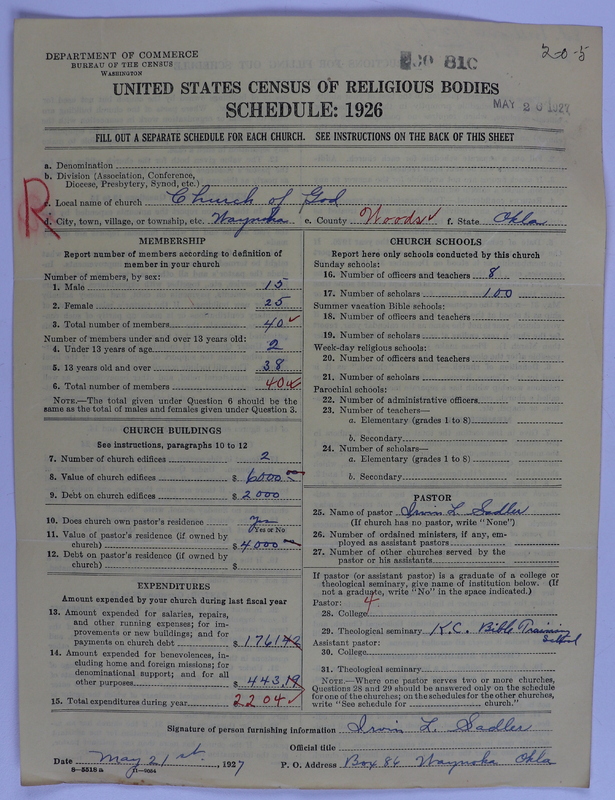 DEPARTMENT OF COMMERCE
BUREAU OF THE CENSUS
WASHINGTON
30 81C
20-5
UNITED STATES CENSUS OF RELIGIOUS BODIES
SCHEDULE: 1926
MAY 26 1927
FILL OUT A SEPARATE SCHEDULE FOR EACH CHURCH. SEE INSTRUCTIONS ON THE BACK OF THIS SHEET
R
a. Denomination
b. Division (Association, Conference,
Diocese, Presbytery, Synod, etc.)
c. Local name of church Church of God
d. City, town, village, or township, etc. Waynoka e. County Woods ✓ f. State Okla
MEMBERSHIP
Report number of members according to definition of
member in your church
Number of members, by sex:
1. Male 15
2. Female 25
3. Total number of members 40 ✓
Number of members under and over 13 years old:
4. Under 13 years of age 2
5. 13 years old and over 38
6. Total number of members 40 ✓
NOTE.—The total given under Question 6 should be
same as the total of males and females given under Question 3.
CHURCH BUILDINGS
See instructions, paragraphs 10 to 12
7. Number of church edifices 2
8. Value of church edifices $ 6000
9. Debt on church edifices $ 2000
10. Does church own pastor's residence? Yes
Yes or No
11. Value of pastor's residence (if owned by
church) $ 4000
12. Debt on pastor's residence (if owned by
church) $
EXPENDITURES
Amount expended by your church during last fiscal year
13. Amount expended for salaries, repairs,
and other running expenses; for im-
provements or new buildings; and for
payments on church debt $ 1761
14. Amount expended for benevolences, in-
cluding home and foreign missions; for
denominational support; and for all
other purposes $ 443.19
15. Total expenditures during year $ 2204 ✓
CHURCH SCHOOLS
Report here only schools conducted by this church
Sunday schools:
16. Number of officers and teachers 8
17. Number of scholars 100
Summer vacation Bible schools:
18. Number of officers and teachers
19. Number of scholars
Week-day religious schools:
20. Number of officers and teachers
21. Number of scholars
Parochial schools:
22. Number of administrative officers
23. Number of teachers—
a. Elementary (grades 1 to 8)
b. Secondary
24. Number of scholars—
a. Elementary (grades 1 to 8)
b. Secondary
PASTOR
25. Name of pastor Irvin L. Sadler
(If church has no pastor, write "None")
26. Number of ordained ministers, if any, em-
ployed as assistant pastors
27. Number of other churches served by the
pastor or his assistants
If pastor (or assistant pastor) is a graduate of a college or
theological seminary, give name of institution below. (If
not a graduate, write "No" in the space indicated.)
Pastor: 4
28. College
29. Theological seminary K.C. Bible Training
School
Assistant pastor:
30. College
31. Theological seminary
NOTE.—Where one pastor serves two or more churches,
Questions 28 and 29 should be answered only on the schedule
for one of the churches; on the schedules for the other churches,
write "See schedule for church."
Signature of person furnishing information Irvin L. Sadler
Official title
Date May 21st., 1927 P. O. Address Box 86 Waynoka Okla
8—5518a 11—7084